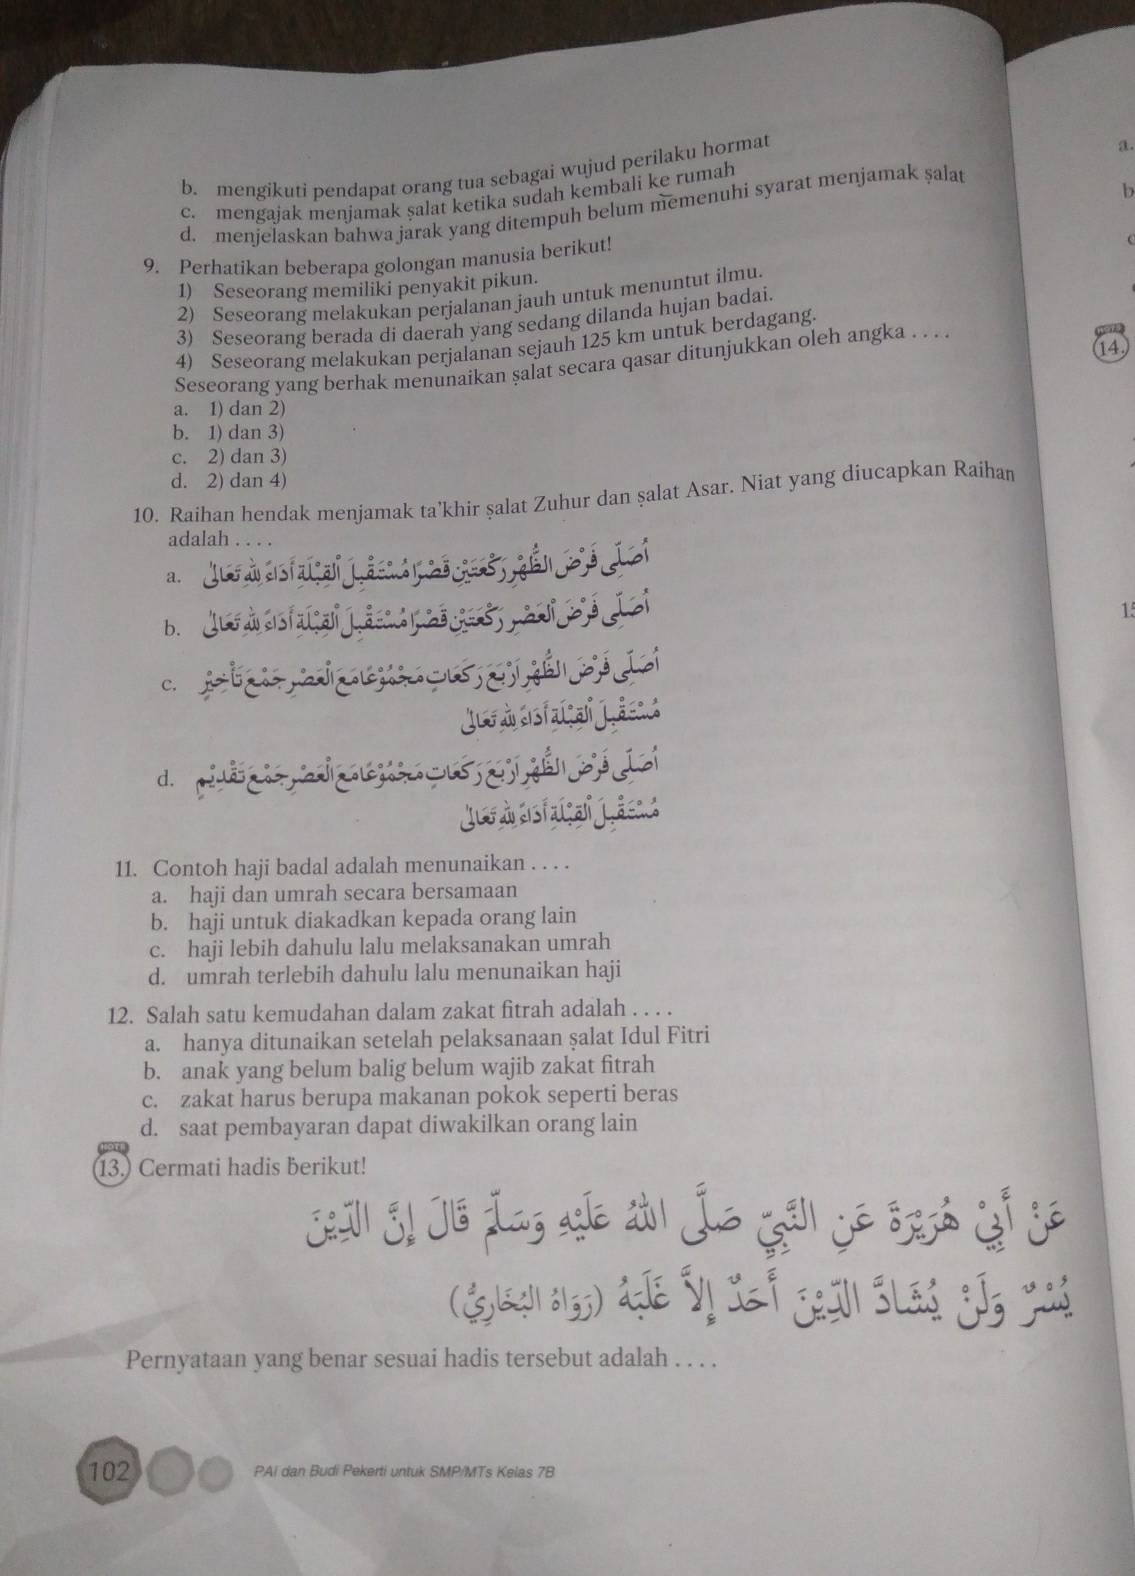 b. mengikuti pendapat orang tua sebagai wujud perilaku hormat
c. mengajak menjamak ṣalat ketika sudah kembali ke rumah
d. menjelaskan bahwa jarak yang ditempuh belum memenuhi syarat menjamak ṣalat
9. Perhatikan beberapa golongan manusia berikut!
1) Seseorang memiliki penyakit pikun.
2) Seseorang melakukan perjalanan jauh untuk menuntut ilmu.
3) Seseorang berada di daerah yang sedang dilanda hujan badai.
4) Seseorang melakukan perjalanan sejauh 125 km untuk berdagang.
Seseorang yang berhak menunaikan ṣalat secara qasar ditunjukkan oleh angka . . . .
a. 1) dan 2)
b. 1) dan 3)
c. 2) dan 3)
d. 2) dan 4)
10. Raihan hendak menjamak ta’khir ṣalat Zuhur dan ṣalat Asar. Niat yang diucapkan Raihan
adalah . . . .
a. أُصَلِّى فَرْضَ الظُّهْرِ رَكْعَتَيْنِ قَصْرًا مُسْتَقْبِلَ الْقِبْلَةِ أَدَاءً لِلّٰهِ تَعَالَى
b. أُصَلِّى فَرْضَ الْعَصْرِ رَكْعَتَيْنِ قَصْرًا مُسْتَقْبِلَ الْقِبْلَةِ أَدَاءً لِلّٰهِ تَعَالَى
c. أُصَلِّى فَرْضَ الظُّهْرِ أَرْبَعَ رَكَعَاتٍ مَجْمُوْعًا مَعَ الْعَصْرِ جَمْعَ تَأْخِيْرٍ
مُسْتَقْبِلَ الْقِبْلَةِ أَدَاءً لِلّٰهِ تَعَالَى
d. أُصَلِّى فَرْضَ الظُّهْرِ أَرْبَعَ رَكَعَاتٍ مَجْمُوْعًا مَعَ الْعَصْرِ جَمْعَ تَقْدِيْمٍ
مُسْتَقْبِلَ الْقِبْلَةِ أَدَاءً لِلّٰهِ تَعَالَى
11. Contoh haji badal adalah menunaikan . . . .
a. haji dan umrah secara bersamaan
b. haji untuk diakadkan kepada orang lain
c. haji lebih dahulu lalu melaksanakan umrah
d. umrah terlebih dahulu lalu menunaikan haji
12. Salah satu kemudahan dalam zakat fitrah adalah . . . .
a. hanya ditunaikan setelah pelaksanaan ṣalat Idul Fitri
b. anak yang belum balig belum wajib zakat fitrah
c. zakat harus berupa makanan pokok seperti beras
d. saat pembayaran dapat diwakilkan orang lain
HOTS
13. Cermati hadis berikut!
عَنْ أَبِيْ هُرَيْرَةَ عَنِ النَّبِيِّ صَلَّى اللهُ عَلَيْهِ وَسَلَّمَ قَالَ إِنَّ الدِّيْنَ
يُسْرٌ وَلَنْ يُشَادَّ الدِّيْنَ أَحَدٌ إِلَّا غَلَبَهُ (رَوَاهُ الْبُخَارِيُّ)
Pernyataan yang benar sesuai hadis tersebut adalah . . . .
102
PAI dan Budi Pekerti untuk SMP/MTs Kelas 7B
a.
b
c
HOTS
14.
15